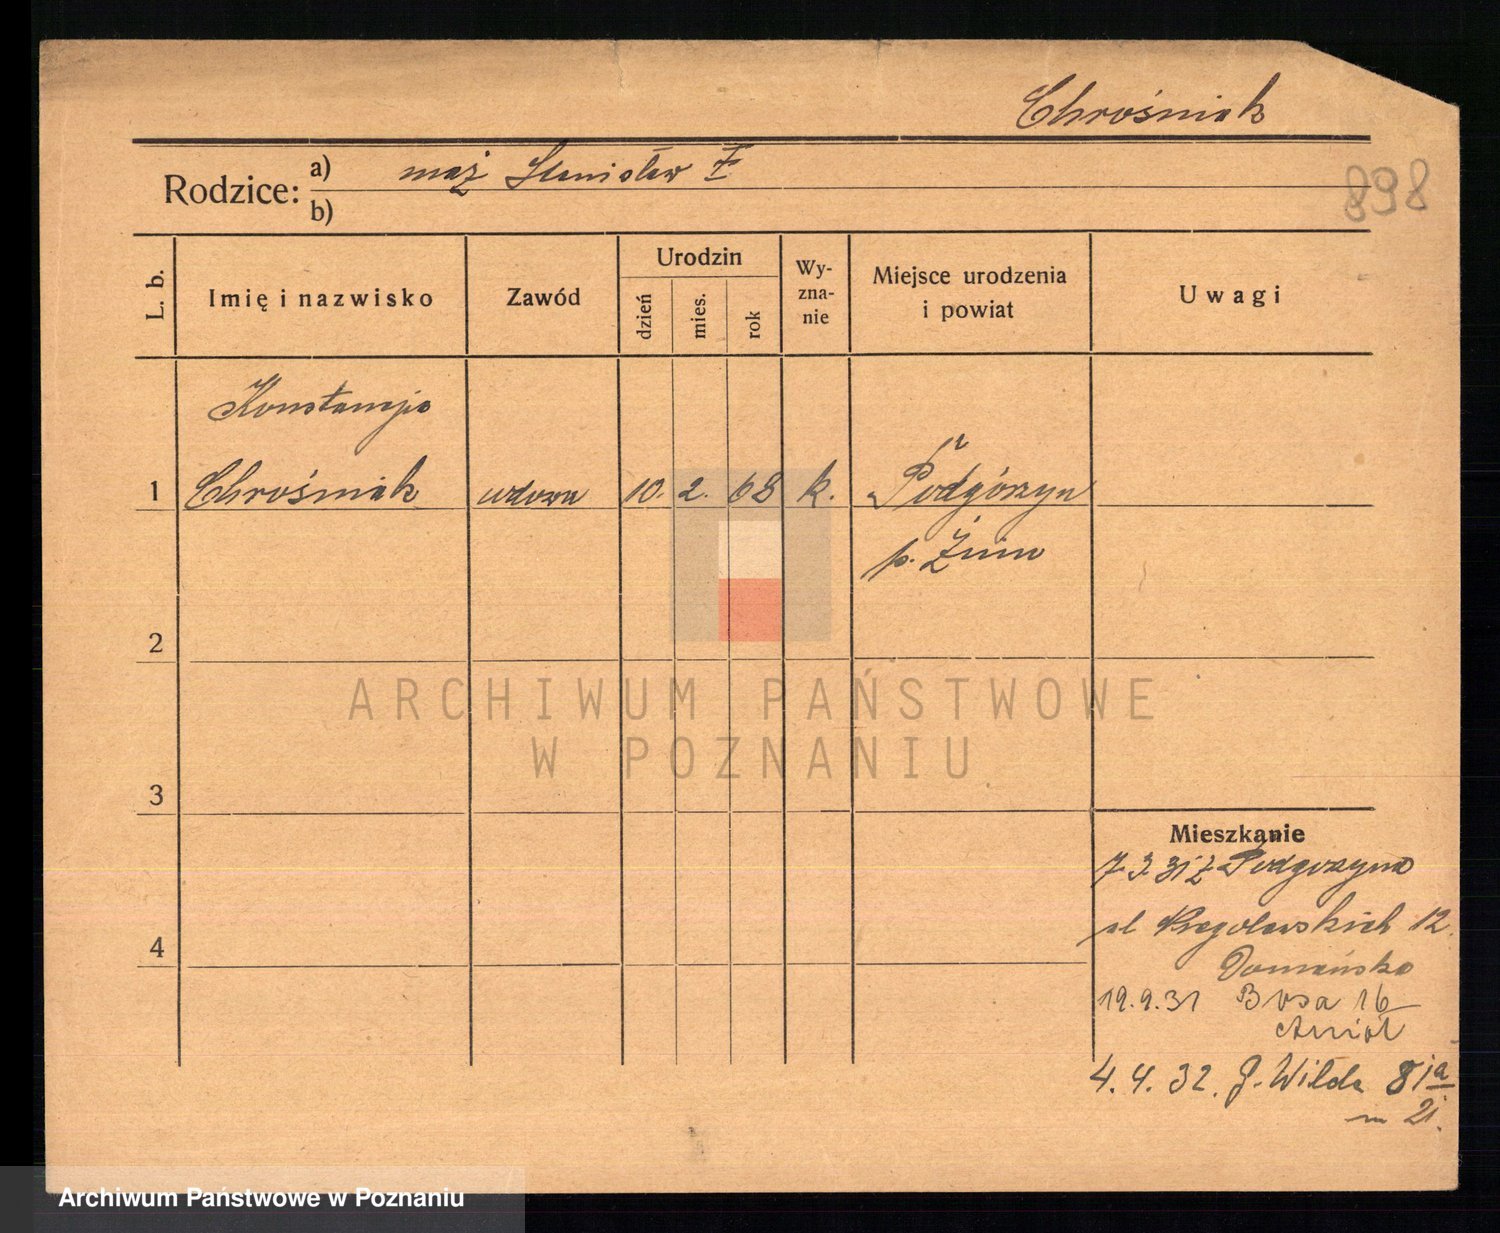 Chrośniak
Rodzice: a) mąż Stanisław
b)
898
L. b.
Imię i nazwisko
Zawód
Urodzin
dzień
mies.
rok
Wy-
zna-
nie
Miejsce urodzenia
i powiat
Uwagi
Konstancja
1 Chrośniak wdowa 10. 2. 68 k. Podgórzyn
p. Żnin
2
ARCHIWUM PAŃSTWOWE
W POZNANIU
3
Mieszkanie
7.3.31 z Podgorzyna
12.
Domańska
4
19.9.31 Bosa 16
Anioł
4.4.32. G. Wilda 81a
m 21.
Archiwum Państwowe w Poznaniu